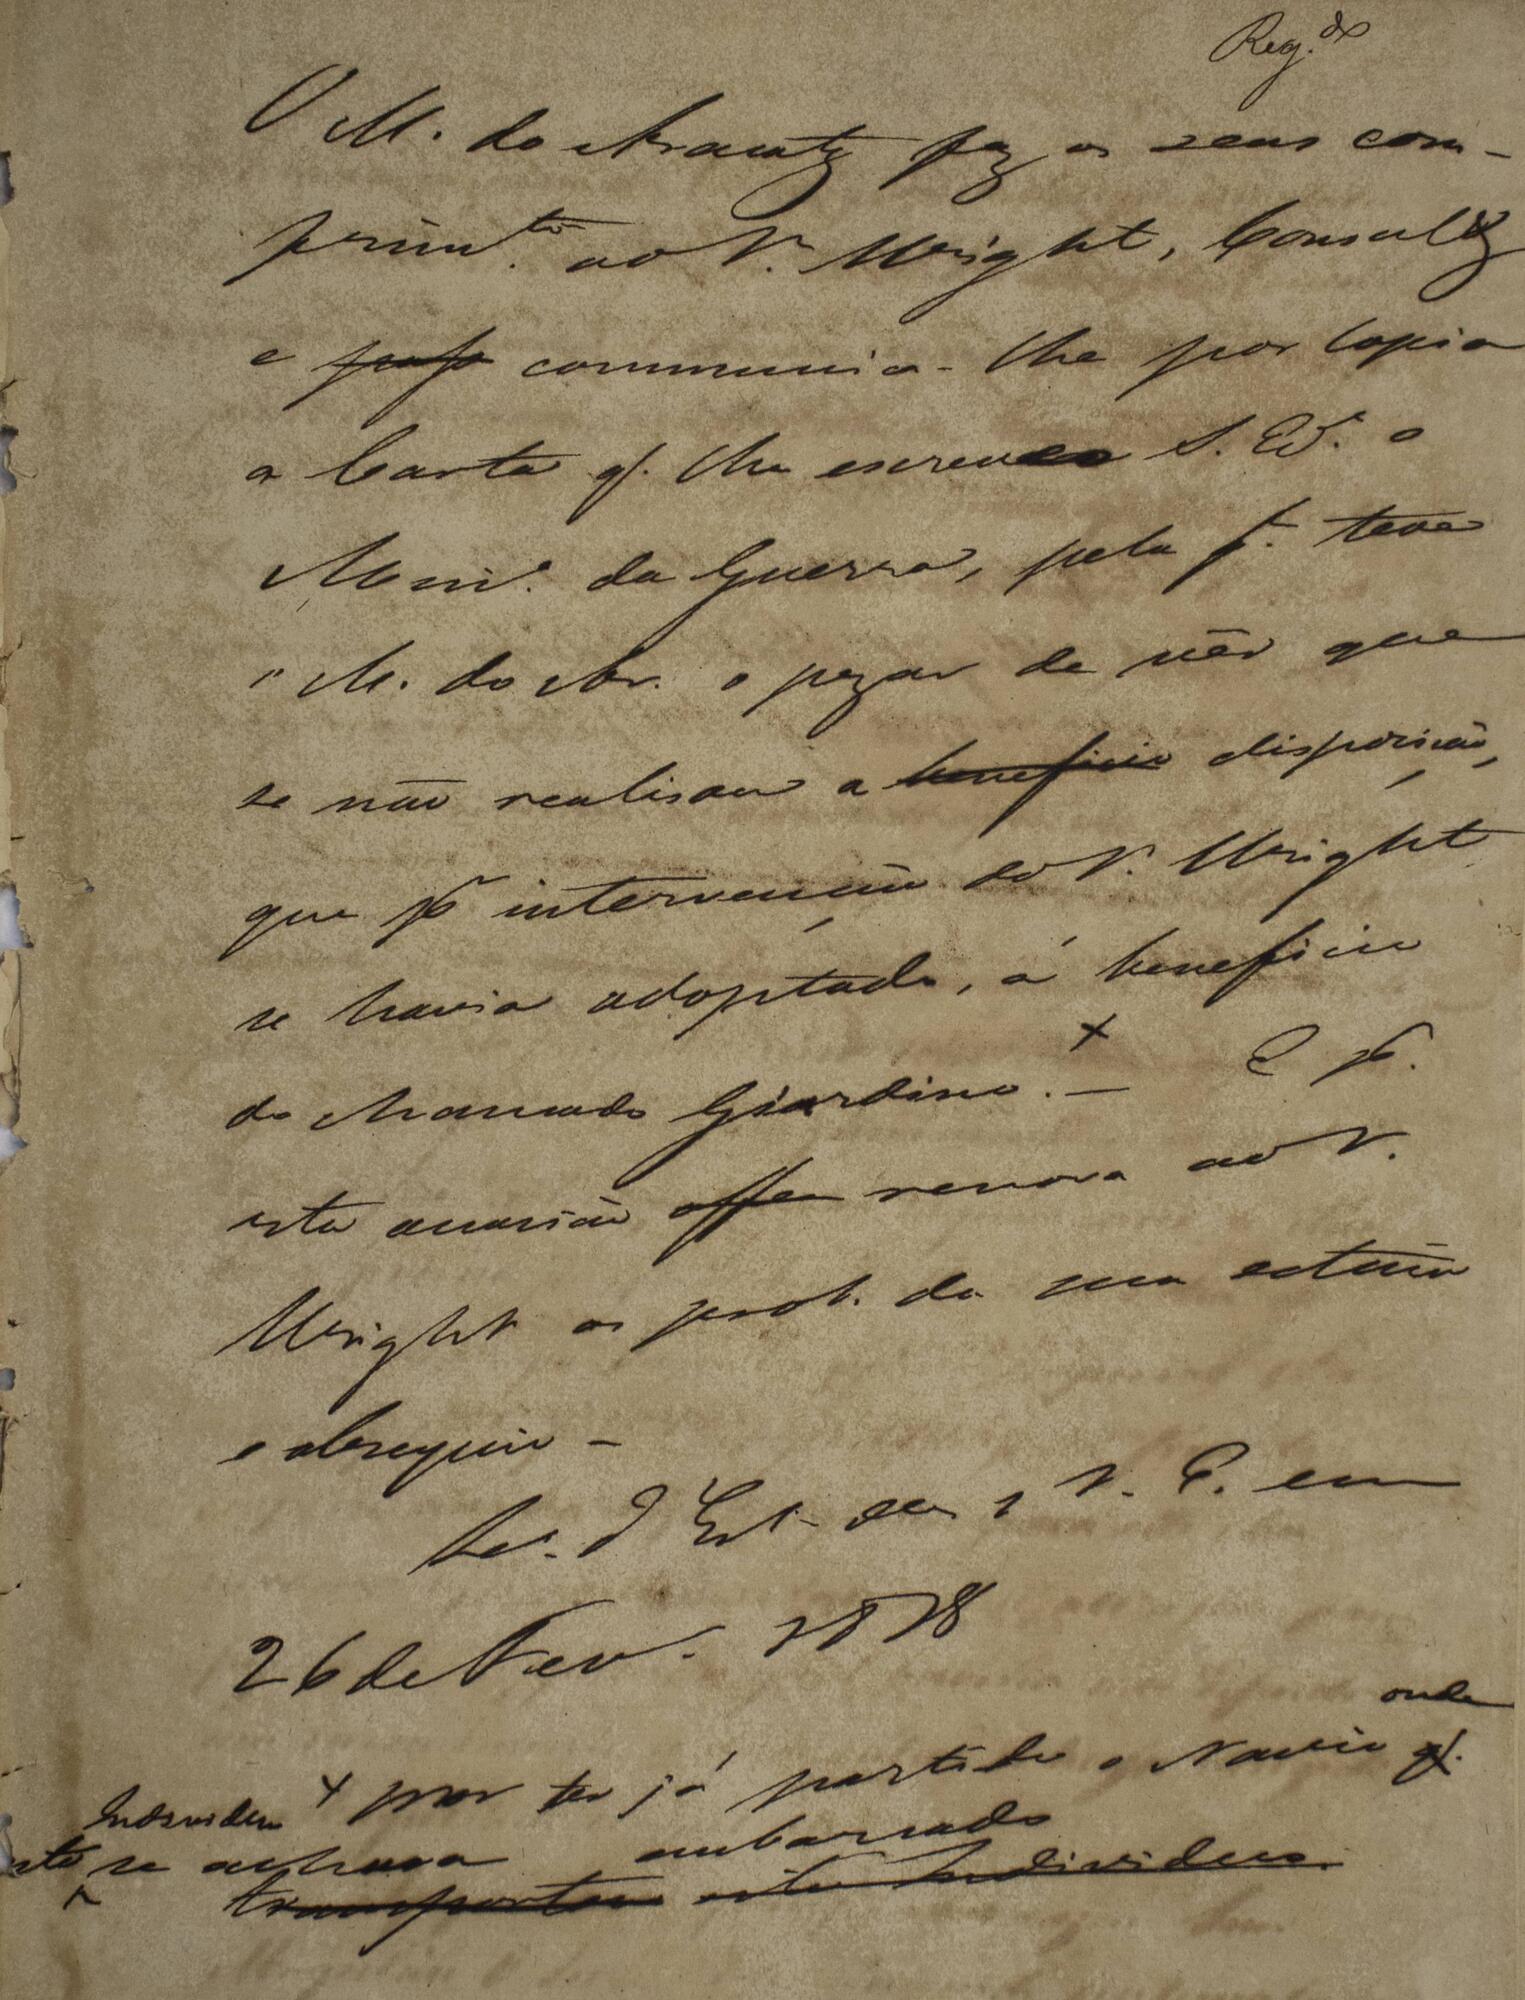 Reg.do
O M. do Aracaty faz os seus com-
prim.tos ao Sr. Wright, Consul &
e communica-lhe por copia
a Carta q. lhe escreveo S. Ex.ª o
Mini.º da Guerra, pela q.l teve
o M. do Ar. o pezar de vêr que
se não realisou a beneficio disposição,
que p.r intervenção do Sr. Wright
se havia adoptado, á beneficio
do chamado Giardino. — + E p.r
esta occasião offer renova ao Sr.
Wright os prot. da sua estima
e obsequio -
Sec. d'Est. dos N. E. em
26 de Fev. 1828
+ por ter já partido o Navio q. onde
este Individuo se achava embarcado
transportou este Individuo.